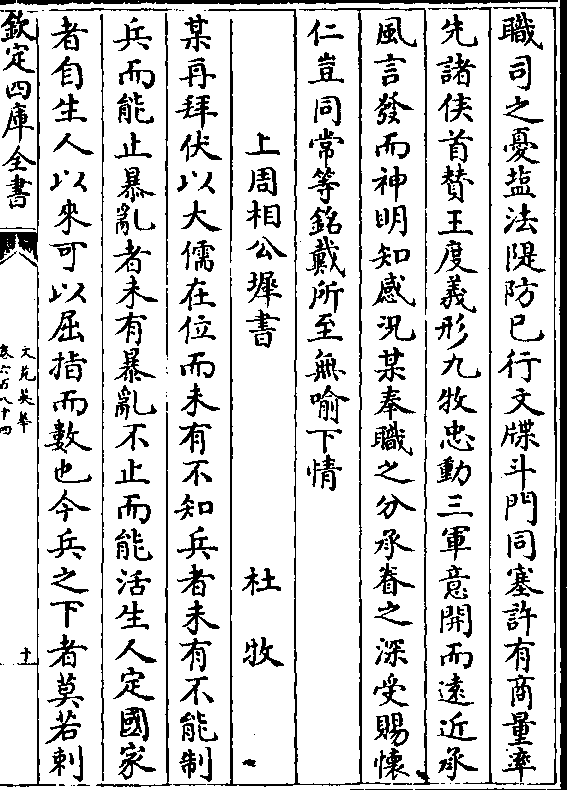 職司之憂盐法隄防已行文牒斗門同塞許有商量率
先諸侯首賛王度義形九牧忠動三軍意開而遠近承
風言發而神明知感况某奉職之分承眷之深受賜懐
仁豈同常等銘戴所至無喻下情
上周相公墀書 杜牧
某再拜伏以大儒在位而未有不知兵者未有不能制
兵而能止暴亂者未有暴亂不止而能活生人定國家
者自生人以來可以屈指而數也今兵之下者莫若刺
欽定四庫全書
文苑英華
卷六百八十四
十